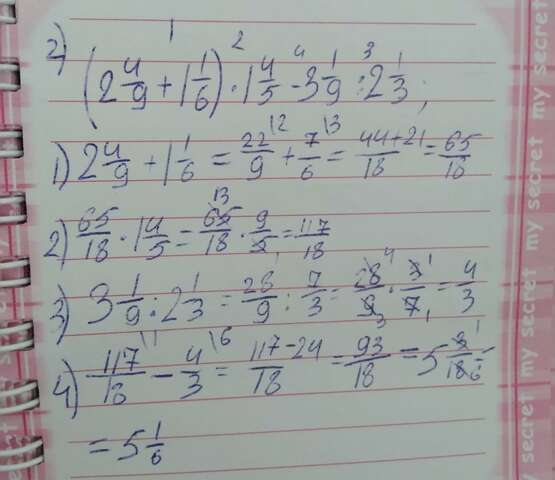 1 2 4 3
2) (2 4/9 + 1 1/6) · 1 4/5 - 3 1/9 : 2 1/3 ;
1) 2 4/9 + 1 1/6 = 22/9 \2 + 7/6 \3 = 44+21/18 = 65/18
2) 65/18 · 1 4/5 = 65 13/18 · 9/5 1 = 117/18
3) 3 1/9 : 2 1/3 = 28/9 : 7/3 = 28 4/9 3 · 3 1/7 1 = 4/3
4) 117/18 \1 - 4/3 \6 = 117-24/18 = 93/18 = 5 3 1/18 6 =
= 5 1/6
my secret my secret my secret